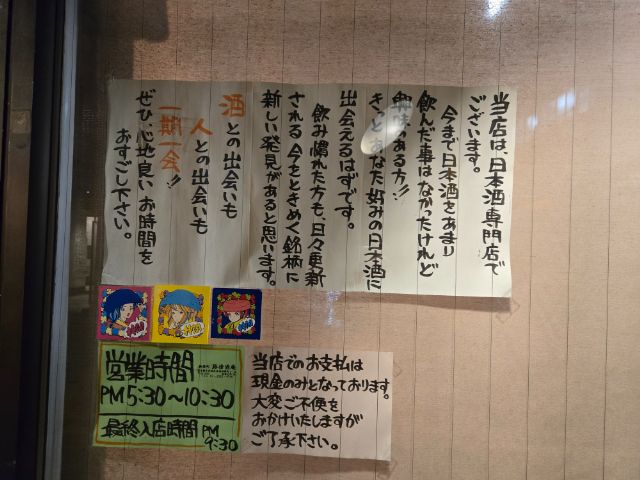 当店は、日本酒専門店で
ございます。
今まで日本酒をあまり
飲んだ事はなかったけれど
興味のある方!!
きっとあなた好みの日本酒に
出会えるはずです。
飲み慣れた方も、日々更新
される今をときめく銘柄に
新しい発見があると思います。
酒との出会いも
人との出会いも
一期一会!!
ぜひ、心地良いお時間を
おすごし下さい。
営業時間
PM5:30〜10:30
最終入店時間PM
9:30
当店でのお支払は
現金のみとなっております。
大変ご不便を
おかけいたしますが
ご了承下さい。